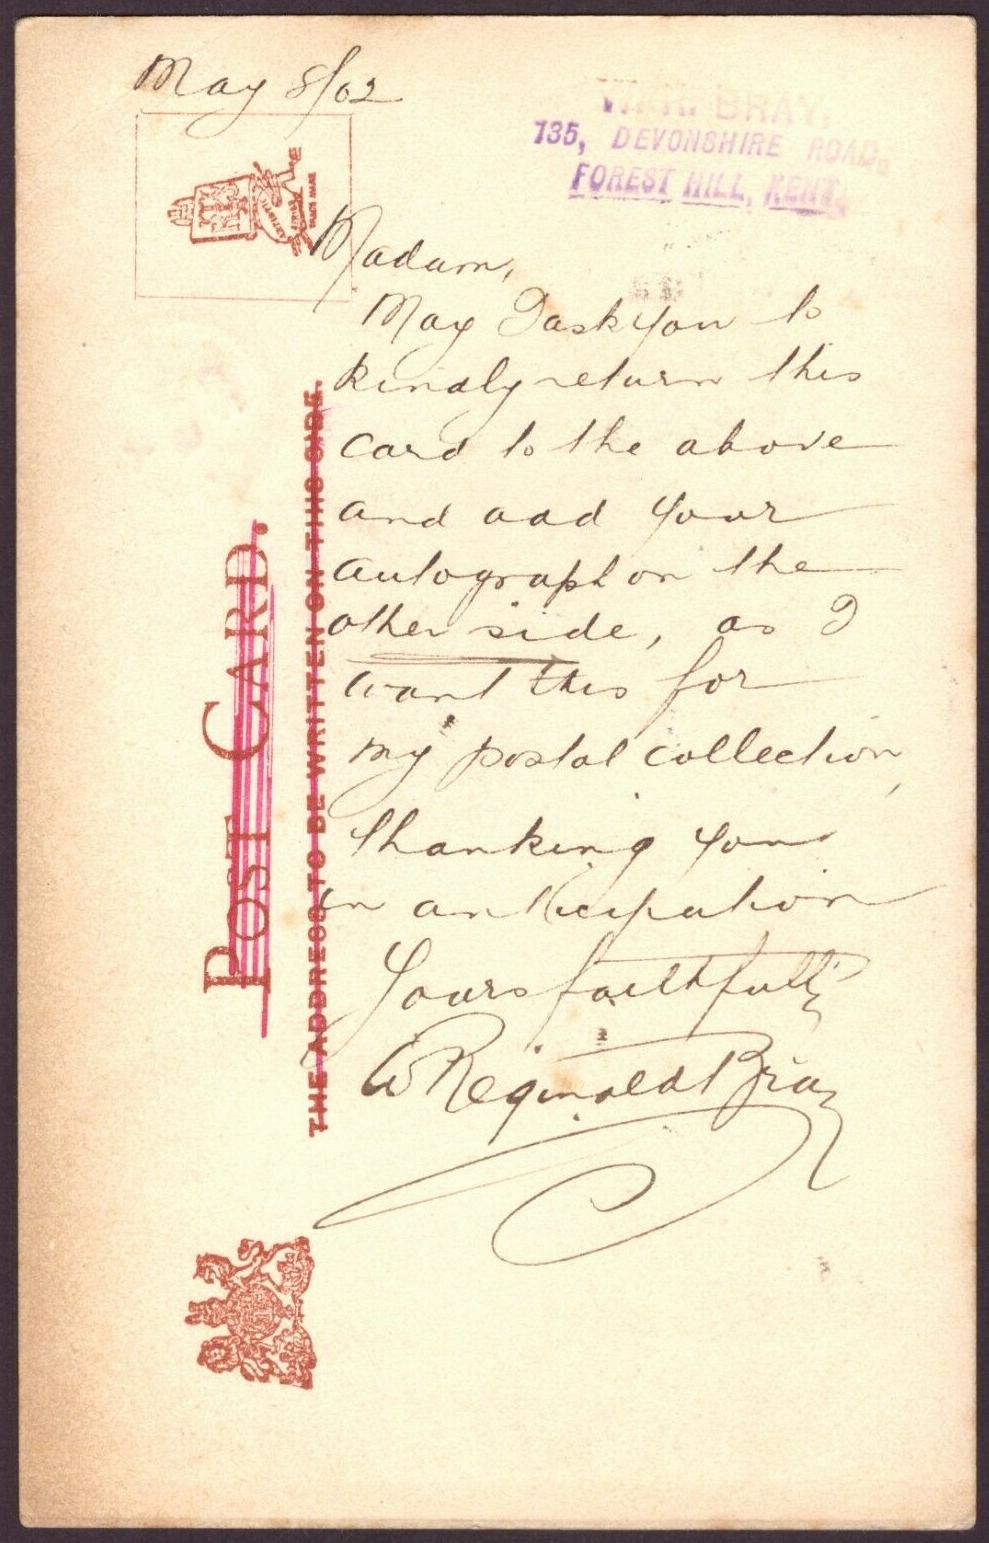 May 8/02
W. R. BRAY,
135, DEVONSHIRE ROAD,
FOREST HILL, KENT.
Madam,
May I ask you to
kindly return this
card to the above
and add your
autograph on the
other side, as I
want this for
my postal collection,
thanking you
in anticipation
Yours faithfully
W Reginald Bray
POST CARD.
THE ADDRESS TO BE WRITTEN ON THIS SIDE.